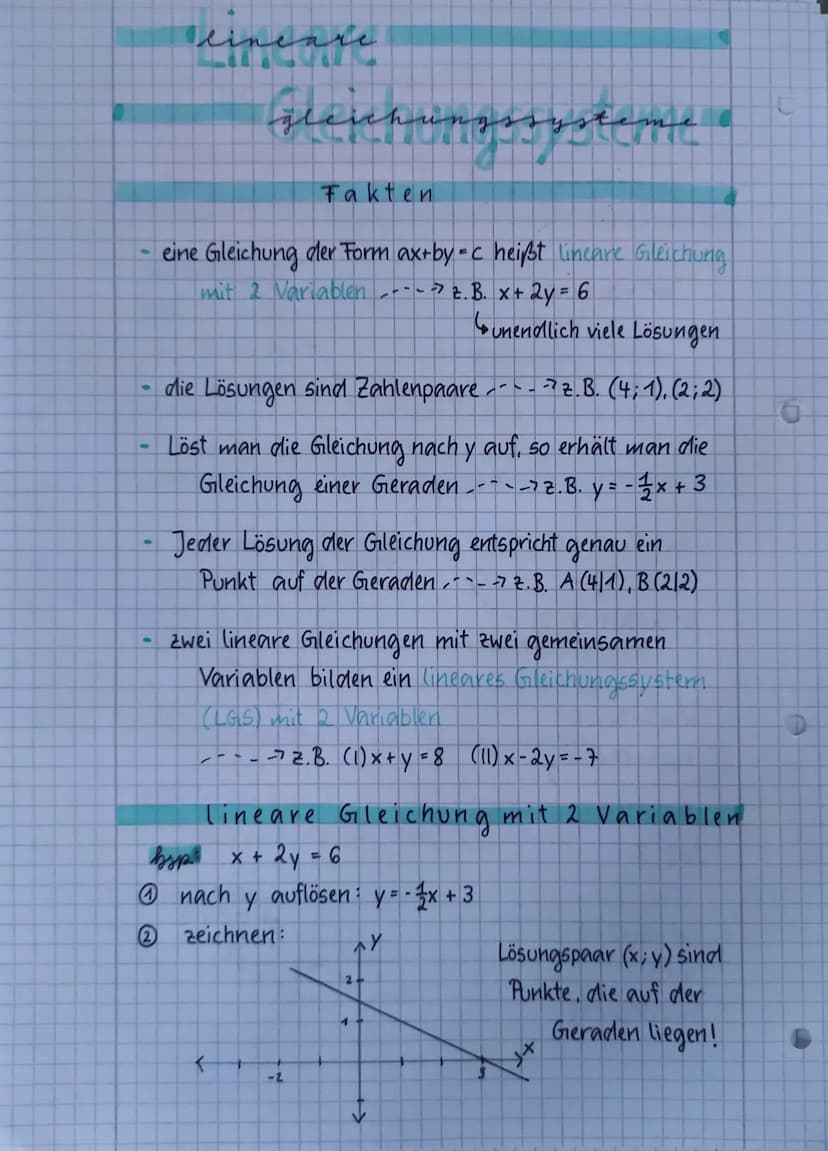 Lineare
Gleichungssysteme
Fakten
- eine Gleichung der Form ax+by=c heißt lineare Gleichung
mit 2 Variablen ----> z.B. x + 2y = 6
↳ unendlich viele Lösungen
- die Lösungen sind Zahlenpaare ----> z.B. (4;1), (2;2)
- Löst man die Gleichung nach y auf, so erhält man die
Gleichung einer Geraden ----> z.B. y = -½x + 3
- Jeder Lösung der Gleichung entspricht genau ein
Punkt auf der Geraden ----> z.B. A(4|1), B(2|2)
- zwei lineare Gleichungen mit zwei gemeinsamen
Variablen bilden ein lineares Gleichungssystem
(LGS) mit 2 Variablen
----> z.B. (I) x + y = 8 (II) x - 2y = -7
lineare Gleichung mit 2 Variablen
bsp: x + 2y = 6
① nach y auflösen: y = -½x + 3
② zeichnen:
y
2
1
-2
x
Lösungspaar (x;y) sind
Punkte, die auf der
Geraden liegen!